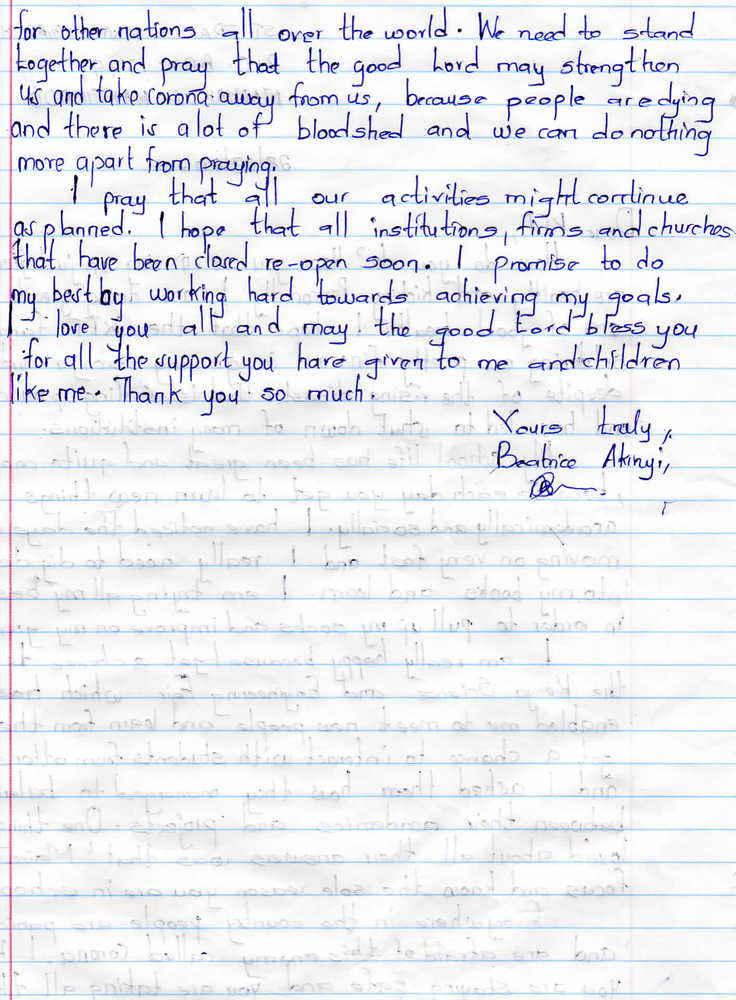 for other nations all over the world. We need to stand
together and pray that the good Lord may strengthen
us and take corona away from us, because people are dying
and there is a lot of bloodshed and we can do nothing
more apart from praying.
I pray that all our activities might continue
as planned. I hope that all institutions, firms and churches
that have been closed re-open soon. I promise to do
my best by working hard towards achieving my goals.
I love you all and may the good Lord bless you
for all the support you have given to me and children
like me. Thank you so much.
Yours truly,
Beatrice Akinyi,